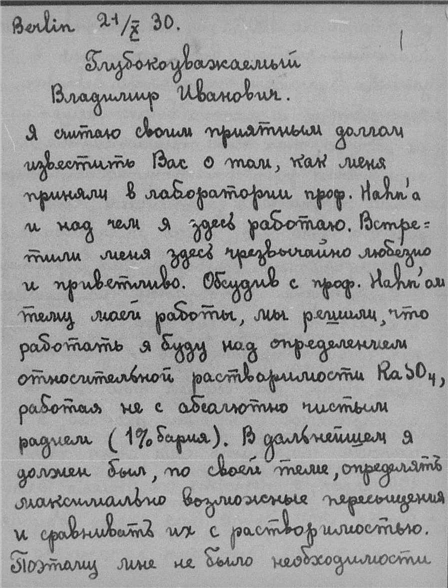 Berlin 21/X 30.
1
Глубокоуважаемый
Владимир Иванович.
Я считаю своим приятным долгом
известить Вас о том, как меня
приняли в лаборатории проф. Hahn'а
и над чем я здесь работаю. Встре=
тили меня здесь чрезвычайно любезно
и приветливо. Обсудив с проф. Hahn'ом
тему моей работы, мы решили, что
работать я буду над определением
относительной растворимости RaSO4,
работая не с абсолютно чистым
радием (1% бария). В дальнейшем я
должен был, по своей теме, определять
максимально возможные пересыщения
и сравнивать их с растворимостью.
Поэтому мне не было необходимости